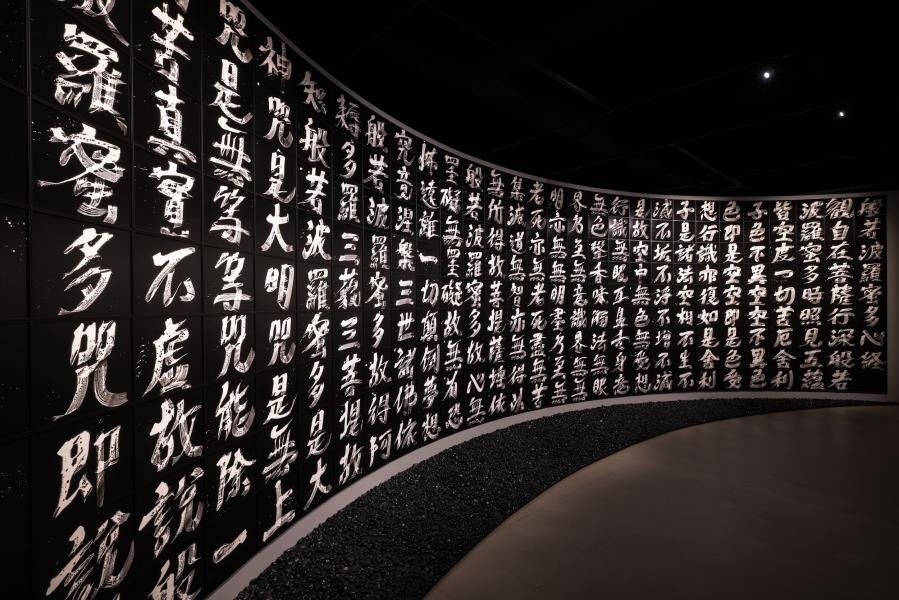 般若波羅蜜多心経
觀自在菩薩行深般若
波羅蜜多時照見五蘊
皆空度一切苦厄舍利
子色不異空空不異色
色即是空空即是色受
想行識亦復如是舍利
子是諸法空相不生不
滅不垢不浄不增不減
是故空中無色無受想
行識無眼耳鼻舌身意
無色聲香味觸法無眼
界乃至無意識界無無
明亦無無明盡乃至無
老死亦無老死盡無苦
集滅道無智亦無得以
無所得故菩提薩埵依
般若波羅蜜多故心無
罣礙無罣礙故無有恐
怖遠離一切顛倒夢想
究竟涅槃三世諸佛依
般若波羅蜜多故得阿
耨多羅三藐三菩提故
知般若波羅蜜多是大
神咒是大明咒是無上
咒是無等等咒能除一
苦真實不虛故說般
羅蜜多咒即說